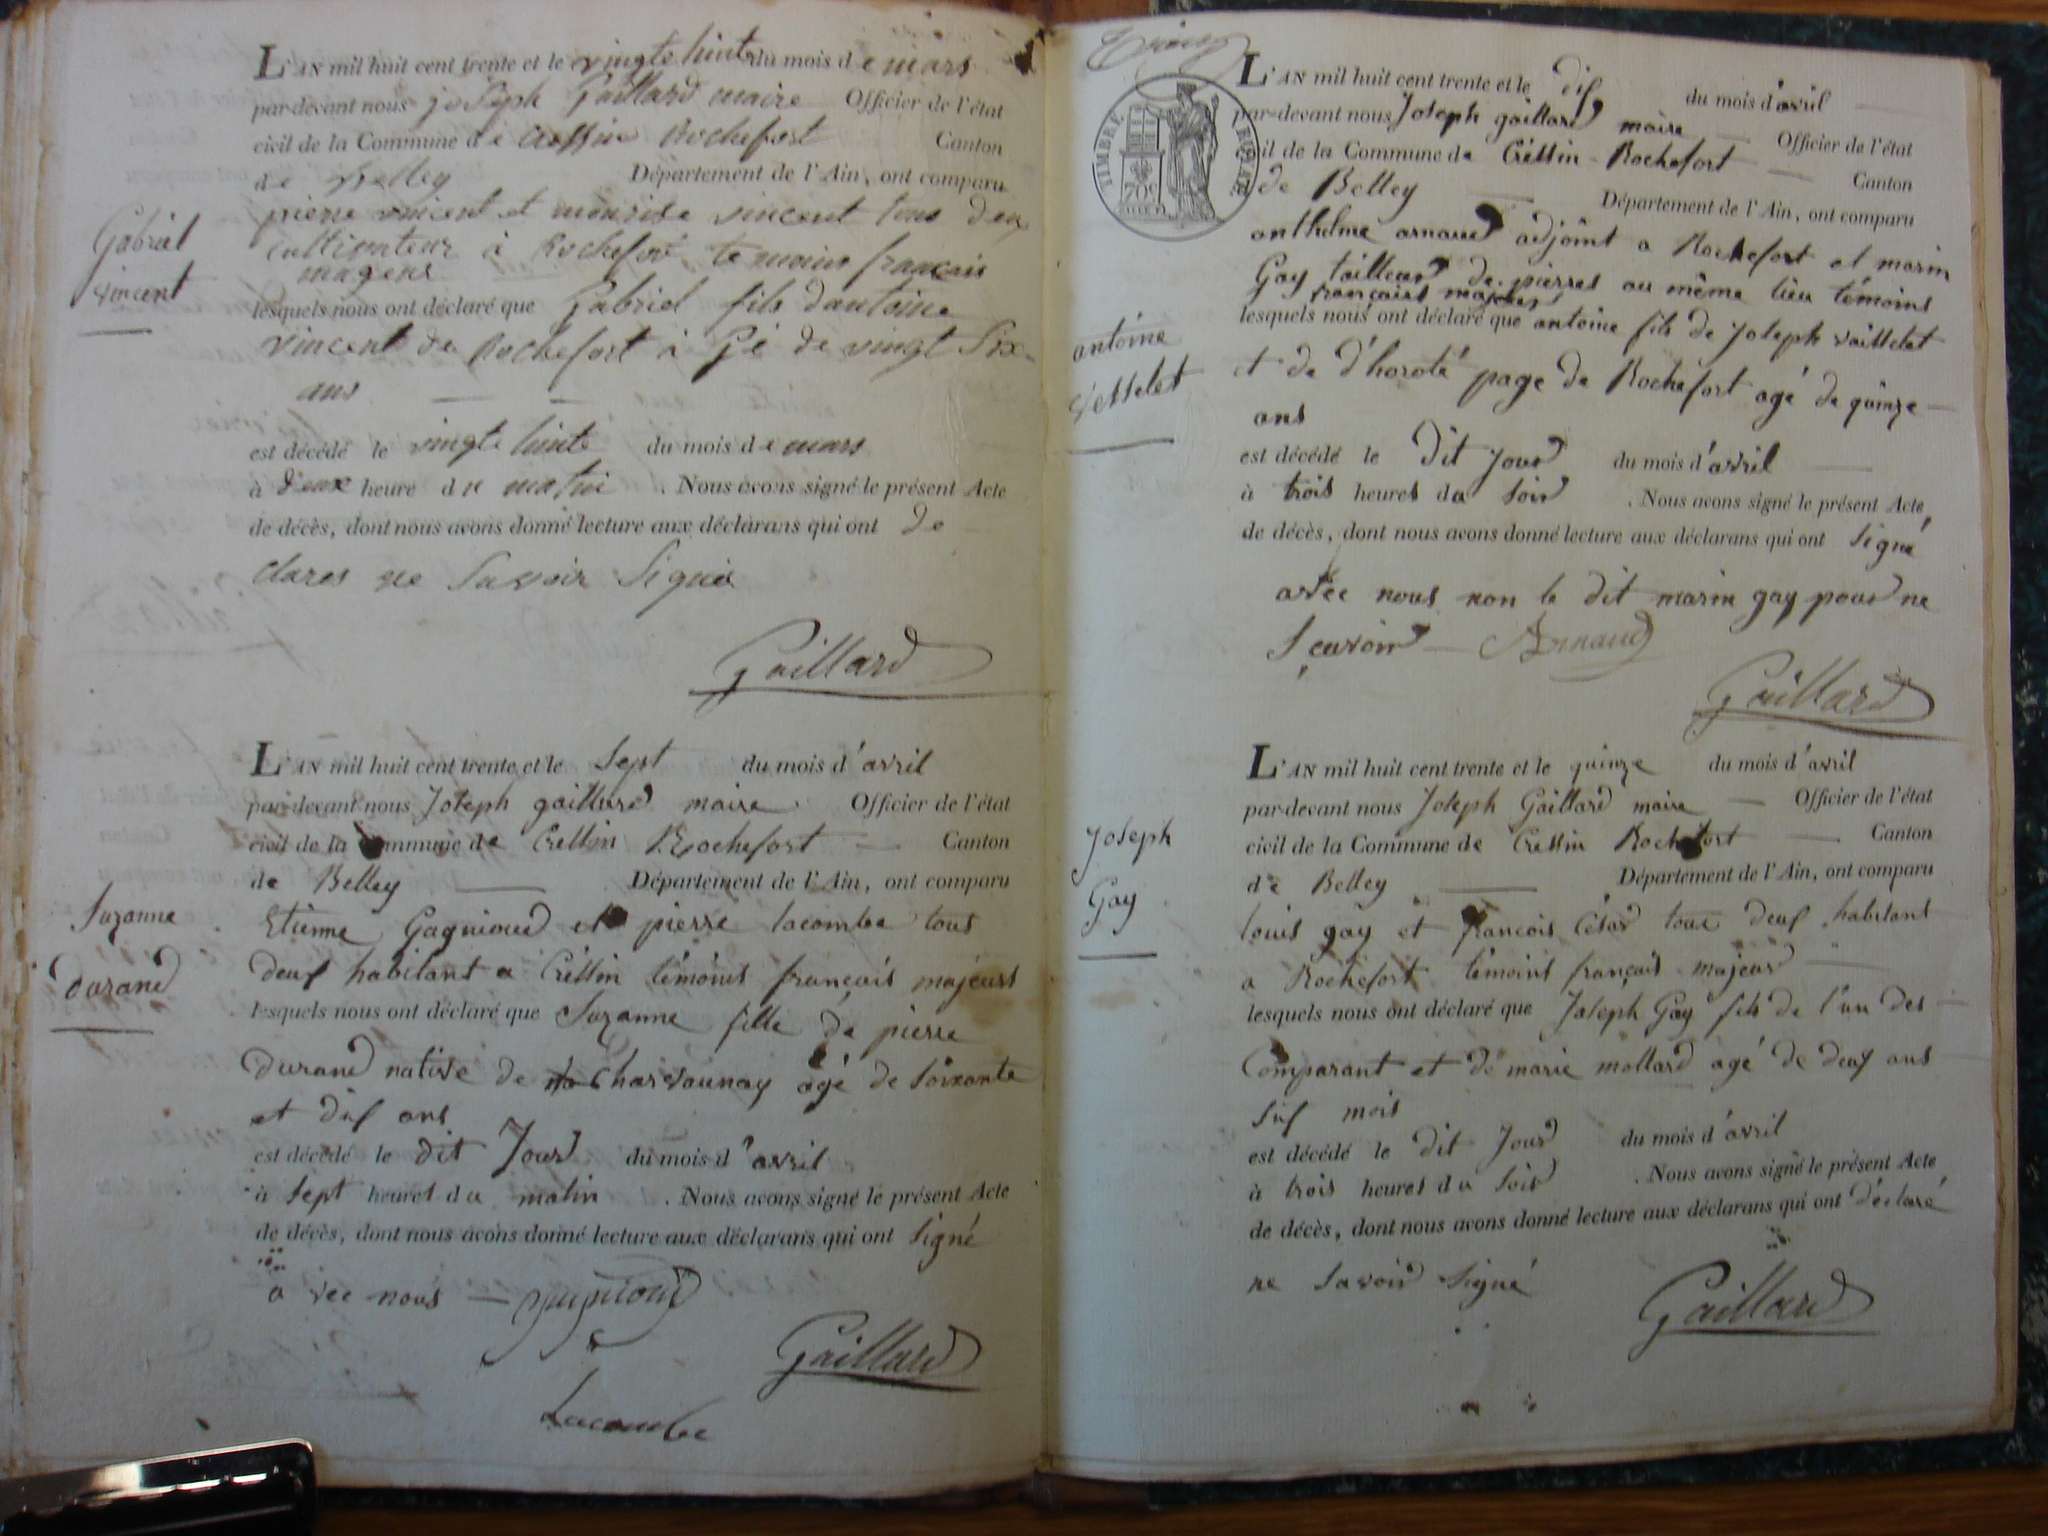 L'AN mil huit cent trente et le vingte huit du mois de mars
par-devant nous joseph Gaillard maire Officier de l'état
civil de la Commune de Cressin Rochefort Canton
de Belley Département de l'Ain, ont comparu
pierre vincent et vincent tous deux
cultivateur à Rochefort temoins francais
mageur
Gabriel
vincent
lesquels nous ont déclaré que Gabriel fils dantoine
vincent de Rochefort à Gé de vingt six
ans
est décédé le vingte huite du mois de mars
à deux heure du matin . Nous avons signé le présent Acte
de décès, dont nous avons donné lecture aux déclarans qui ont de
clares ne Savoir Signér
Gaillard
L'AN mil huit cent trente et le Sept du mois d'avril
par-devant nous Joseph gaillard maire Officier de l'état
civil de la Commune de Cressin Rochefort Canton
de Belley Département de l'Ain, ont comparu
Suzanne
durand
Etienne Gagnioud et pierre lacombe tous
deux habitant a Créssin témoins français majeurs
lesquels nous ont déclaré que Suzanne fille de pierre
durand native de Charvaunay agé de soixante
et dix ans
est décédé le dit Jour du mois d'avril
à Sept heures du matin . Nous avons signé le présent Acte
de décès, dont nous avons donné lecture aux déclarans qui ont signé
avec nous
Gaillard
Lacombe
TIMBRE ROYALE
70c
L'AN mil huit cent trente et le dix du mois d'avril
par-devant nous Joseph gaillard maire Officier de l'état
civil de la Commune de Créssin - Rochefort Canton
de Belley Département de l'Ain, ont comparu
anthelme arnaud adjoint a Rochefort et marin
Gay tailleur de pierres au même lieu témoins
français majeurs
antoine
vesselet
lesquels nous ont déclaré que antoine fils de Joseph vaisselet
et de d'horoté page de Rochefort agé de quinze
ans
est décédé le dit Jour du mois d'avril
à trois heures du soir . Nous avons signé le présent Acte
de décès, dont nous avons donné lecture aux déclarans qui ont signé
avéc nous non le dit marin gay pour ne
sçavoir Arnaud
Gaillard
L'AN mil huit cent trente et le quinze du mois d'avril
par-devant nous Joseph Gaillard maire Officier de l'état
civil de la Commune de Créssin Rochefort Canton
de Belley Département de l'Ain, ont comparu
Joseph
Gay
louis gay et francois César toux deux habitant
a Rochefort témoins français majeur
lesquels nous ont déclaré que Joseph Gay fils de l'un des
Comparant et de marie mollard agé de deux ans
six mois
est décédé le dit Jour du mois d'avril
à trois heures du soir . Nous avons signé le présent Acte
de décès, dont nous avons donné lecture aux déclarans qui ont déclaré
ne savoir signé
Gaillard